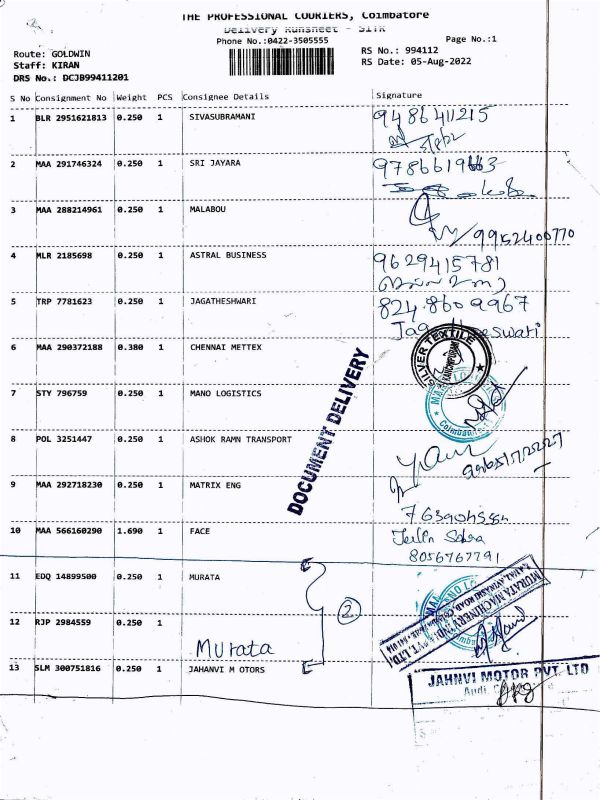 THE PROFESSIONAL COURIERS, Coimbatore
Delivery Runsheet - SITR
Phone No.:0422-3505555
Page No.:1
Route: GOLDWIN
Staff: KIRAN
DRS No.: DCJB99411201
RS No.: 994112
RS Date: 05-Aug-2022
S No Consignment No Weight PCS Consignee Details Signature
1 BLR 2951621813 0.250 1 SIVASUBRAMANI 9486411215
2 MAA 291746324 0.250 1 SRI JAYARA 9786619663
3 MAA 288214961 0.250 1 MALABOU
9952400770
4 MLR 2185698 0.250 1 ASTRAL BUSINESS 9629415781
5 TRP 7781623 0.250 1 JAGATHESHWARI 824 860 9967
6 MAA 290372188 0.380 1 CHENNAI METTEX
SILVER TEXTILE
7 STY 796759 0.250 1 MANO LOGISTICS
DOCUMENT DELIVERY
8 POL 3251447 0.250 1 ASHOK RAMN TRANSPORT
9 MAA 292718230 0.250 1 MATRIX ENG
10 MAA 566160290 1.690 1 FACE
8056767791
11 EDQ 14899500 0.250 1 MURATA
MURATA MACHINERY INDIA PVT. LTD
2
12 RJP 2984559 0.250 1
Murata
13 SLM 300751816 0.250 1 JAHANVI M OTORS
JAHNVI MOTOR PVT. LTD